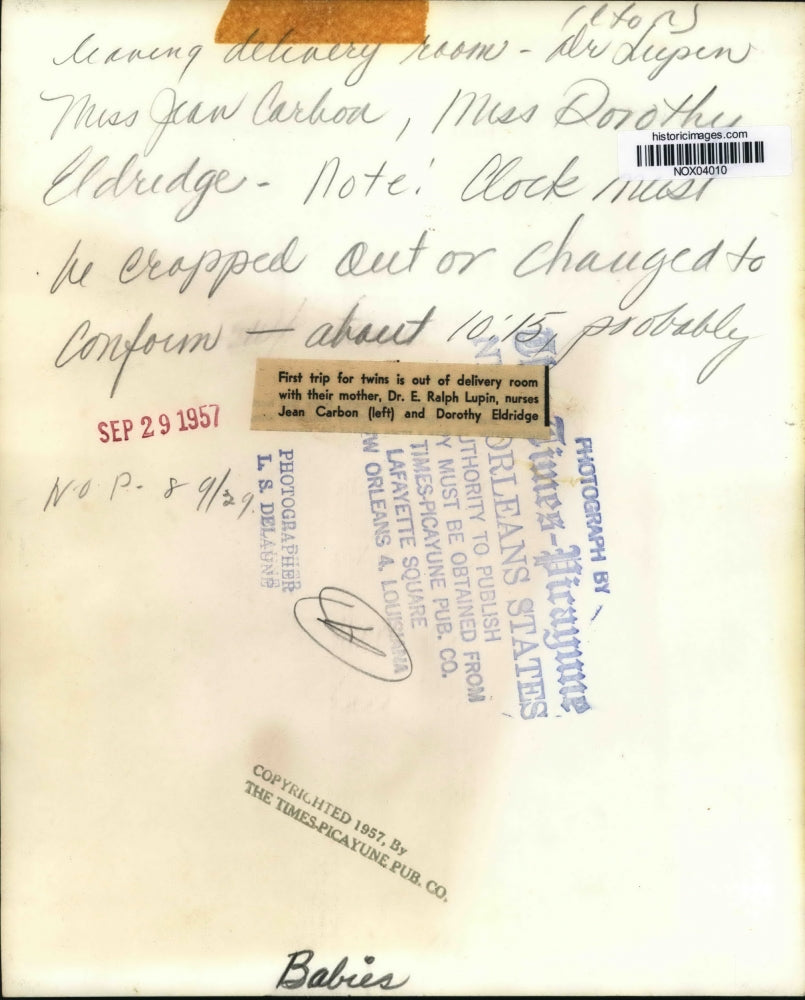 (l to r)
leaving delivery room - Dr Lupin
Miss Jean Carbon, Miss Dorothy
historicimages.com
NOX04010
Eldredge - Note: Clock must
be cropped out or changed to
conform - about 10:15, probably
First trip for twins is out of delivery room
with their mother, Dr. E. Ralph Lupin, nurses
Jean Carbon (left) and Dorothy Eldridge
SEP 29 1957
N.O.P. - 8 9/29
PHOTOGRAPHER
L. S. DELAUNE
PHOTOGRAPH BY
Times-Picayune
ORLEANS STATES
UTHORITY TO PUBLISH
Y MUST BE OBTAINED FROM
TIMES-PICAYUNE PUB. CO.
LAFAYETTE SQUARE
W ORLEANS 4, LOUISIANA
COPYRIGHTED 1957, By
THE TIMES-PICAYUNE PUB. CO.
Babies